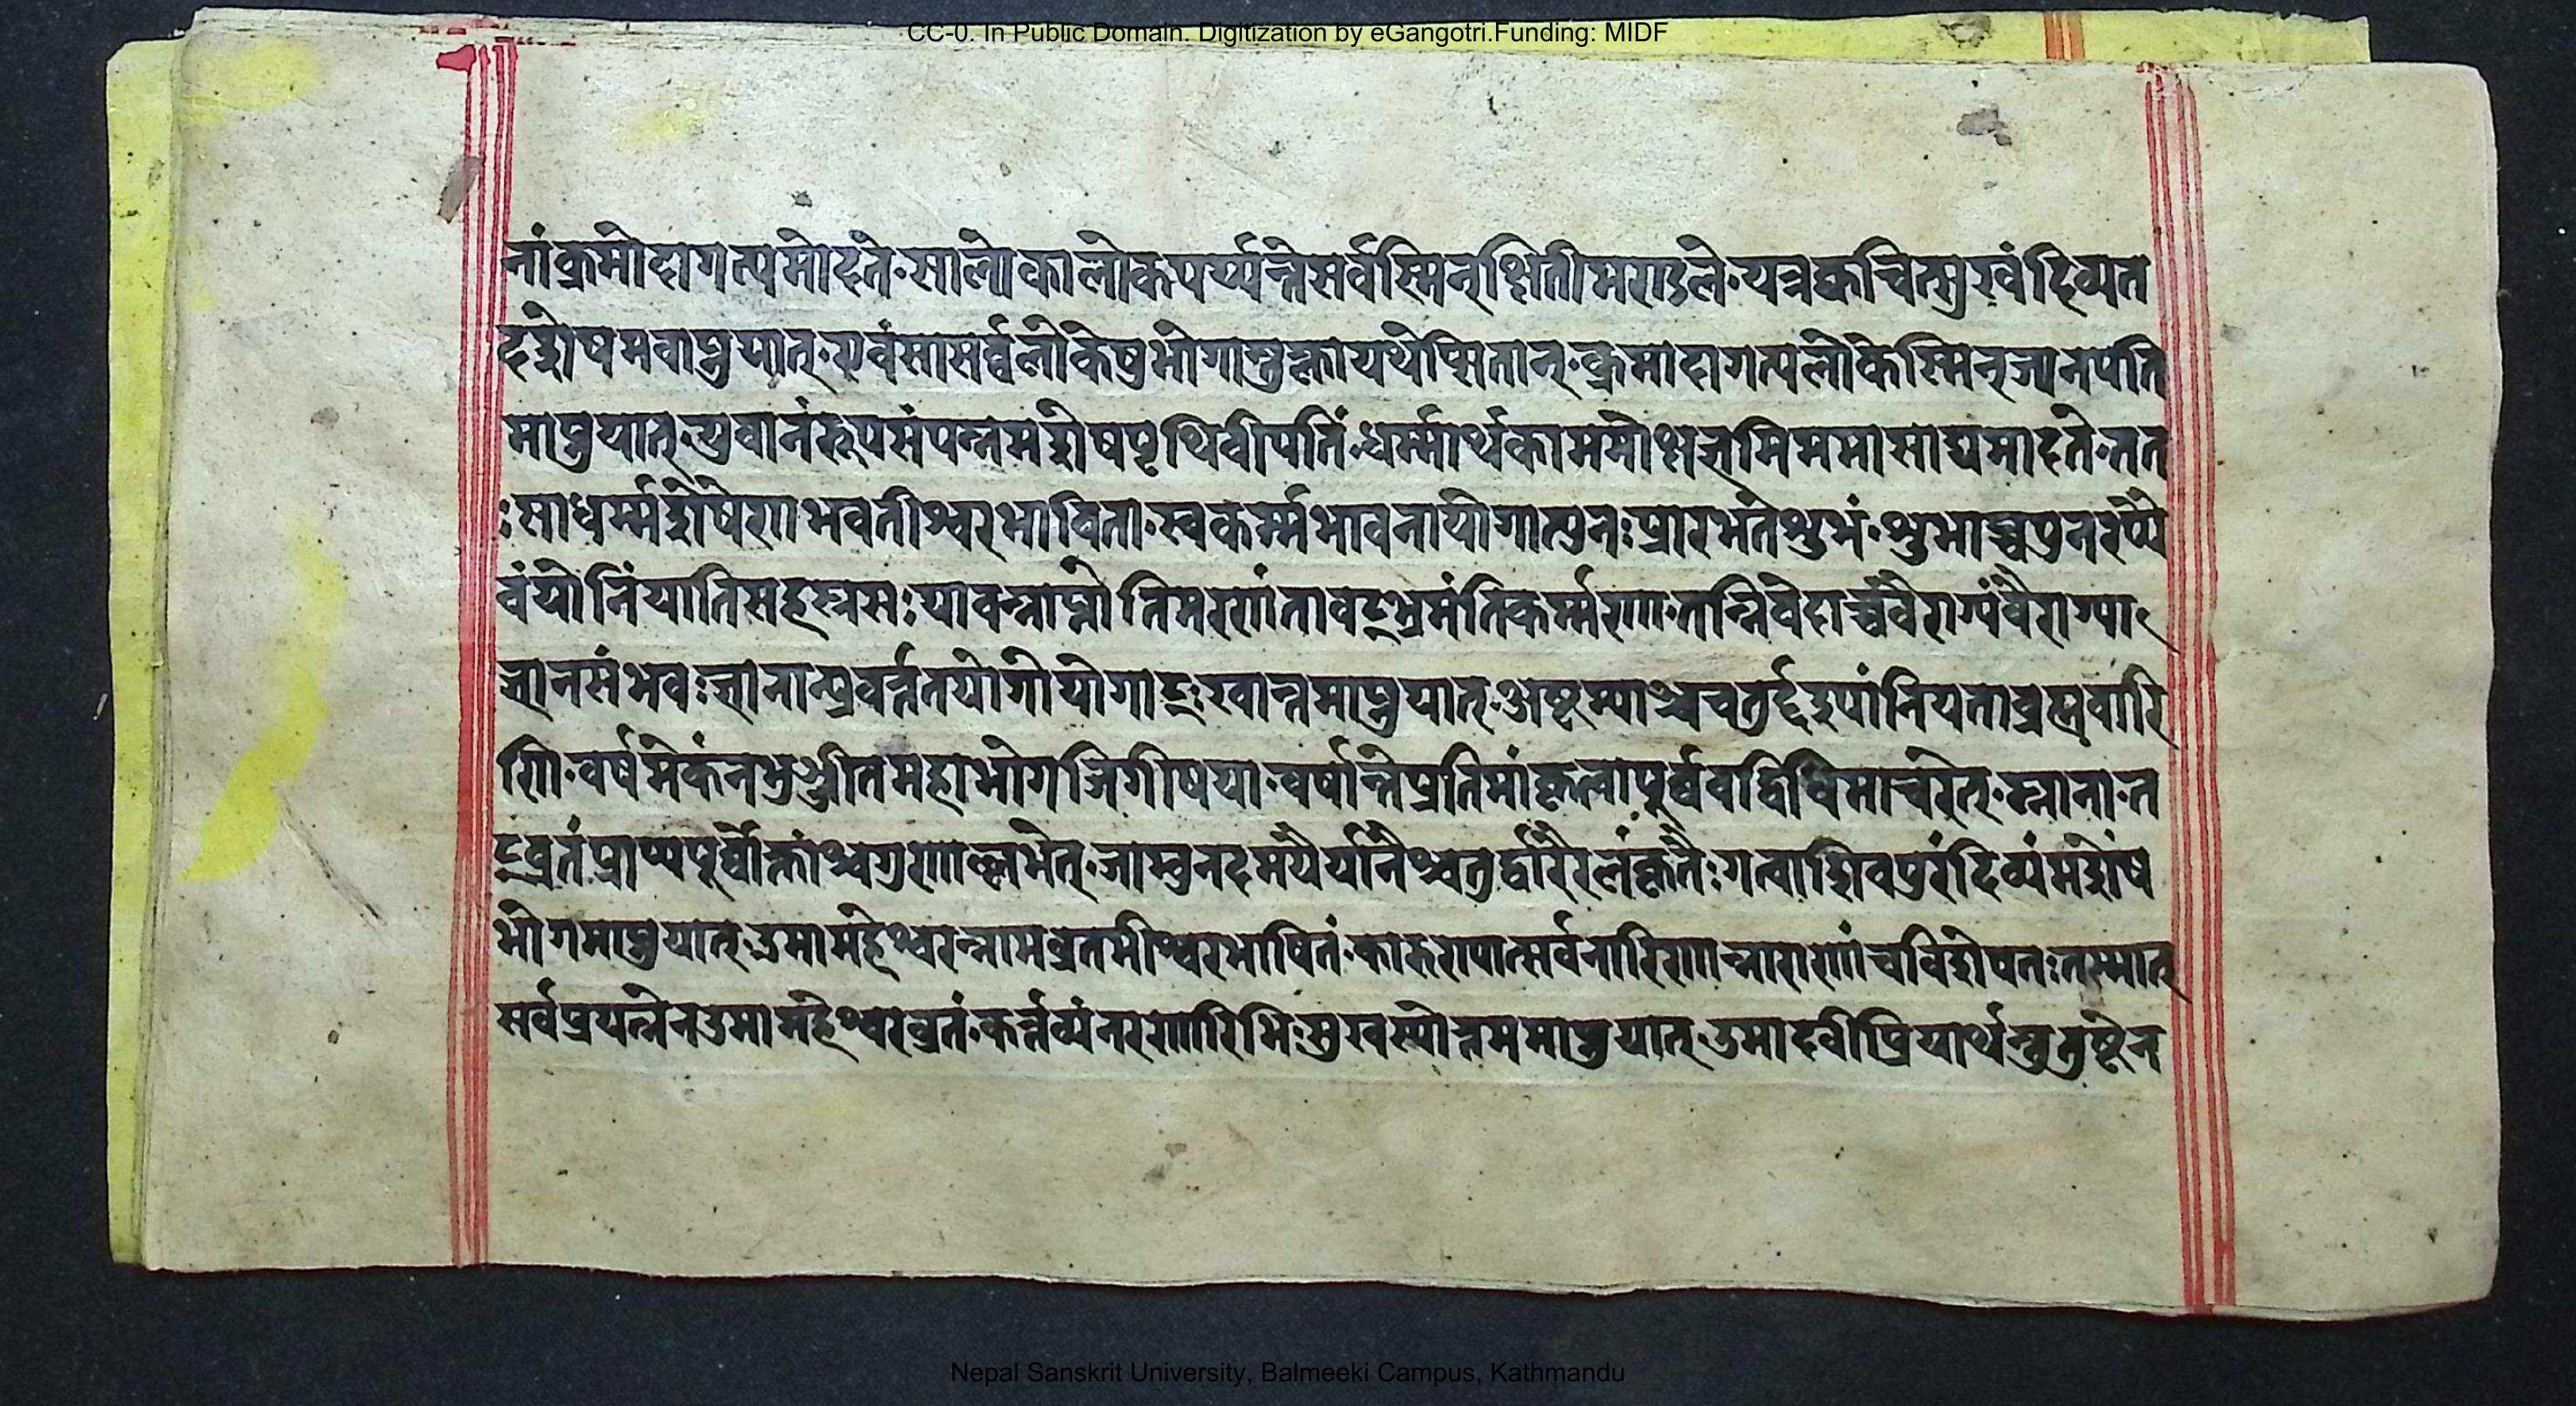 CC-0. In Public Domain. Digitization by eGangotri.Funding: MIDF
नांक्रमोदागत्यमोदते॰सालोकालोकपर्य्यन्तेसर्वस्मिन्क्षितीमण्डले॰यत्रक्वचित्सुखंदिव्यत
दद्गोषमवाप्नुयात्॰एवंसासर्व्वलोकेषुभोगाम्भुक्त्वायथेप्सितान्॰क्रमादागत्यलोकेस्मिन्ज्यानपति
माप्नुयात्॰युवानंरूपसंपन्नमद्गोषपृथिवीपतिं॰धर्म्मार्थकाममोक्षज्ञमिममासाद्यमादते॰तत
ःसाधर्म्मद्गोषेणभवतीश्वरभाविता॰स्वकर्म्मभावनायोगात्पुनःप्रारभतेशुभं॰शुभाच्चपुनरप्ये
वंयोनिंयातिसहस्रसःयावन्नाप्नोतिमरणंतावद्भ्रमंतिकर्म्मणा॰तन्निवेदाच्चवैराग्यंवैराग्या
ज्ञानसंभवःज्ञानात्प्रवर्त्ततयोगीयोगाद्दुःखान्तमाप्नुयात्॰अष्टम्याञ्चचतुर्द्दद्रुपांनियताब्रह्मचारि
णी॰वर्षमेकंनभुञ्जीतमहाभोगजिगीषया॰वर्षान्तेप्रतिमांकृत्वापूर्व्ववद्विधिमाचरेत्॰स्नाना॰त
द्व्रतंप्राप्यपूर्व्वोक्तांश्चगुणाल्लभेत्॰जाम्बुनदमयैर्यानैश्चतुर्द्वारैरलंकृतैःगत्वाद्गिवपुरंदिव्यंमद्गेष
भोगमाप्नुयात्॰उमामहेश्वरन्नामव्रतमीश्वरभाषितं॰कारुण्यात्सर्वनारिणान्नाराणांचविद्गोषतःतस्मात्
सर्वप्रयत्नेनउमामहेश्वरव्रतं॰कर्त्तव्यंनरणारिभिःसुखस्योत्तममाप्नुयात्॰उमादवीप्रियार्थन्तुतुष्टेन
Nepal Sanskrit University, Balmeeki Campus, Kathmandu